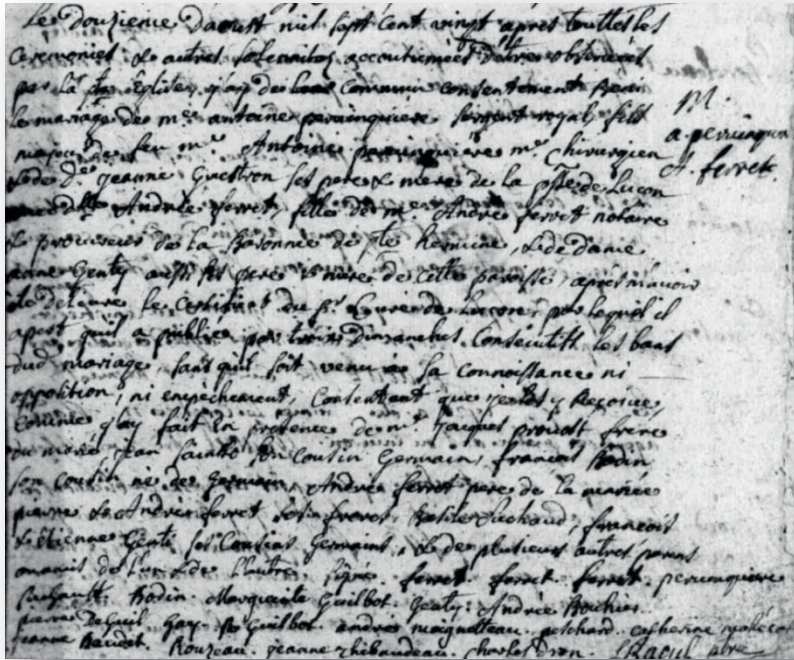 Le douzieme daoust mil sept cent vingt apres touttes les
Ceremonies & autres solennitez accoutumées detre observées
par la Ste Eglise, j'ay de leur Commun consentement Beni
le mariage de me antoine perinquiere sergent royal fils
majeur de feu me Antoine perinquiere me Chirurgien
& de de jeanne Guestron ses pere & mere de la psse de Luçon
Andrée ferret, fille de mr André ferret notaire
& procureur de la Baronnie de Ste hermine, & de dame
anne Genty aussi ses pere & mere de cette paroisse, apres m'avoir
été delivré le Certificat du Sr Curé de Luçon, par lequel il
apert qu'il a publié par trois dimanches Consécutifs les bans
dud mariage, sans qu'il soit venu à sa connoissance ni
opposition, ni empêchement, Consentant que je les y Reçoive,
comme j'ay fait en presence de mr Jacques prouost frère
du marié jean son Cousin Germain, francois Bodin
son Cousin né de Germain, André ferret pere de la mariée
pierre & André ferret ses freres, francois
& Etienne Genty ses Cousins Germains, & de plusieurs autres parens
& amis de l'un & de l'autre, signé. ferret. ferret. ferret. perinquiere
Bodin. Marguerite Guilbot. Genty. Andrée
pierre Guilbot. andré catherine
jeanne Baudet. Rouzeau. jeanne thibaudeau. Charles Dron. Raoul ptre
M.
a. perinquiere
A. ferret.